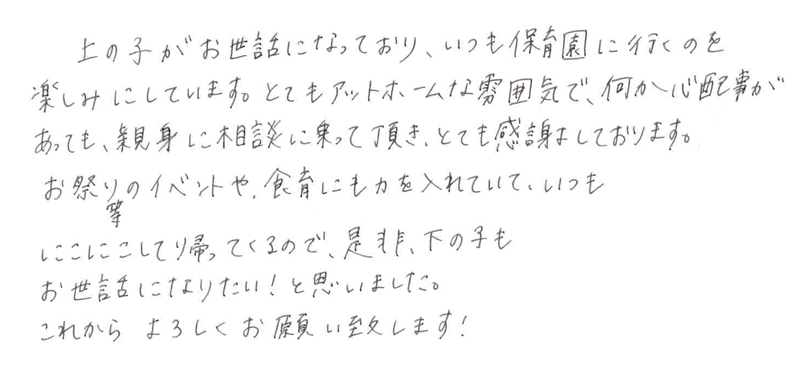 上の子がお世話になっており、いつも保育園に行くのを
楽しみにしています。とてもアットホームな雰囲気で、何か心配事が
あっても、親身に相談に乗って頂き、とても感謝しております。
お祭り等のイベントや、食育にも力を入れていて、いつも
にこにこして帰ってくるので、是非、下の子も
お世話になりたい！と思いました。
これから よろしくお願い致します！